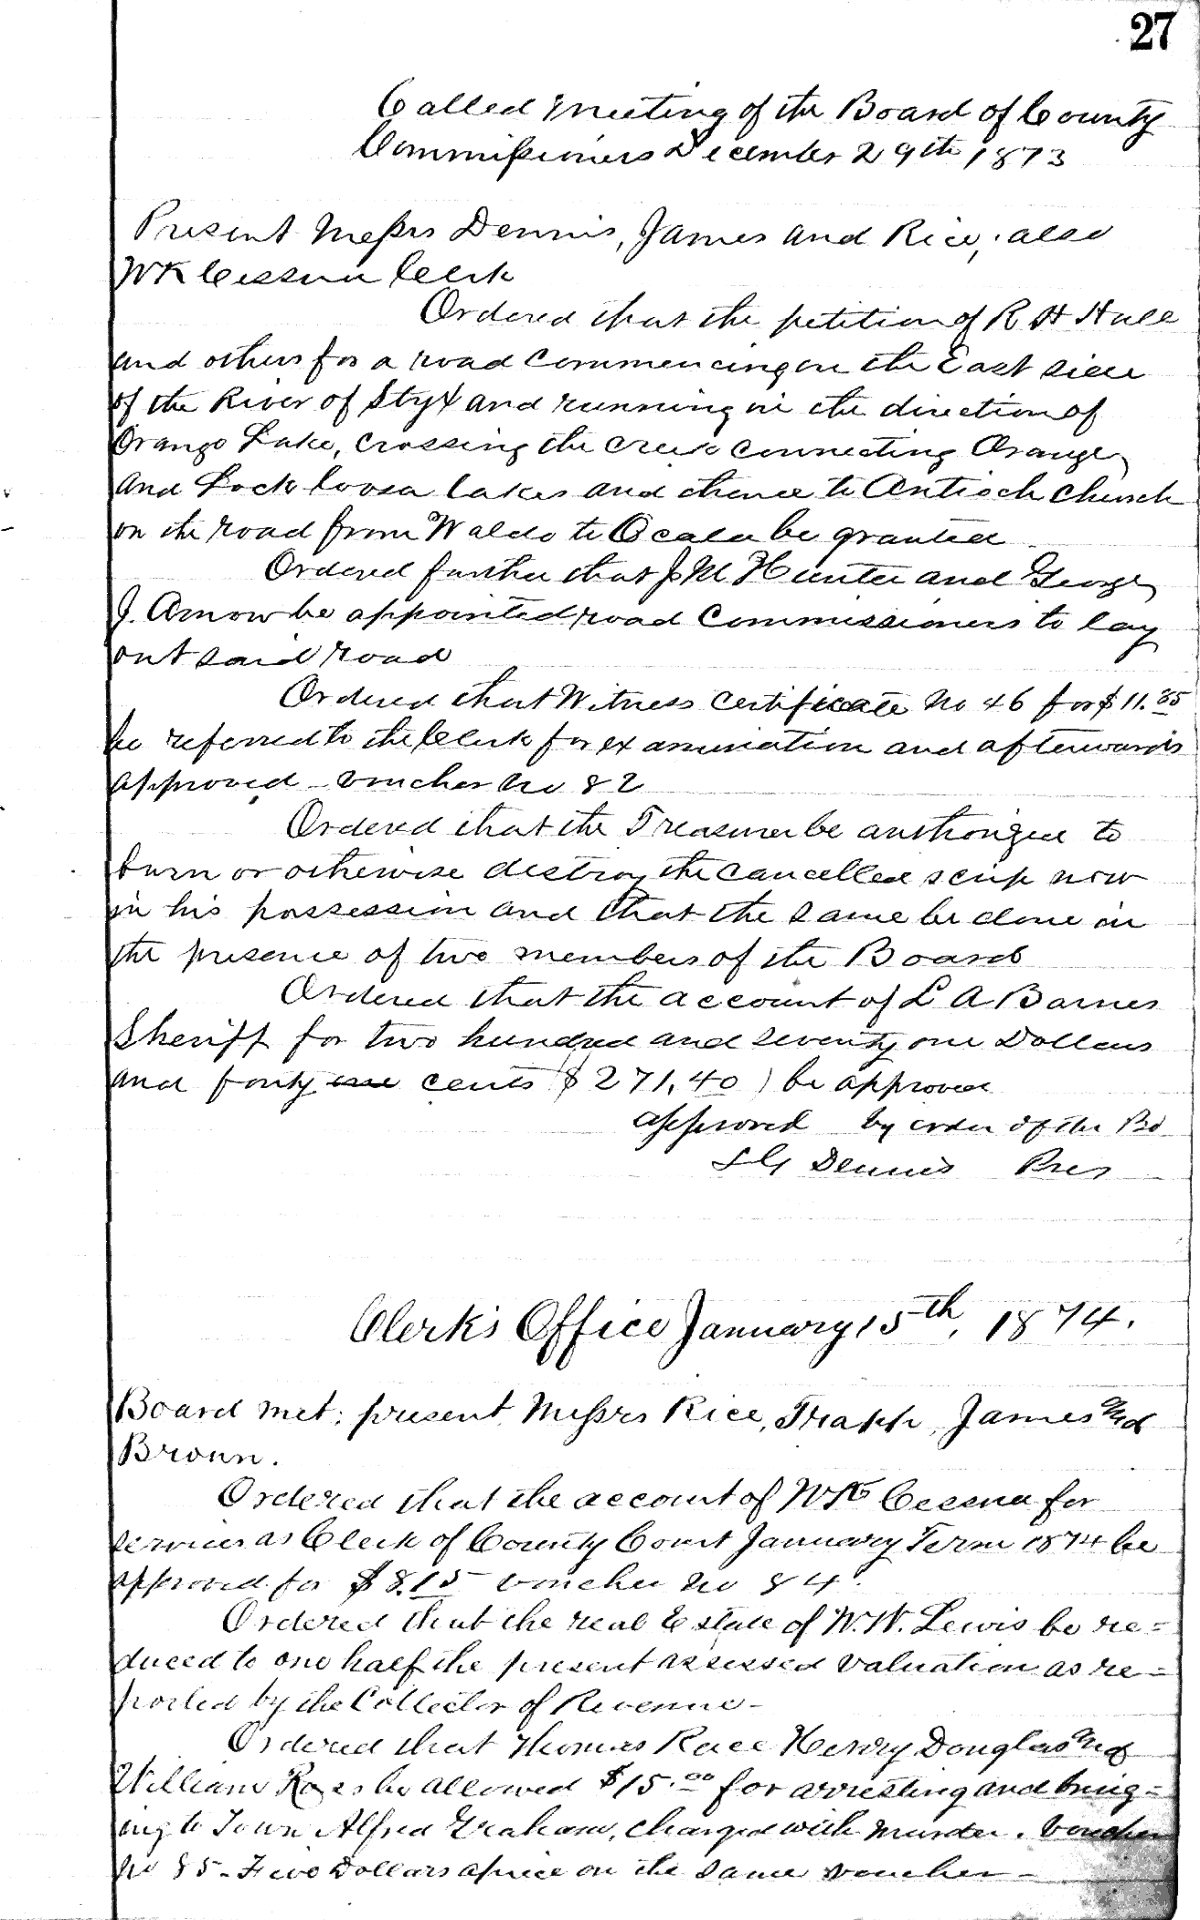 27
Called Meeting of the Board of County
Commissioners December 29th 1873
Present Messrs Dennis, James and Rice, also
WK Cessna Clerk
Ordered that the petition of R H Hall
and others for a road commencing on the East side
of the River of Styx and running in the direction of
Orange Lake, crossing the creek connecting Orange
and Lochloosa lakes and thence to Antioch church
on the road from Waldo to Ocala be granted
Ordered further that J M Hunter and George
J. Arnow be appointed road Commissioners to lay
out said road
Ordered that Witness certificate No 46 for $11.85
be referred to the Clerk for examination and afterwards
approved - voucher no 82
Ordered that the Treasurer be authorized to
burn or otherwise destroy the cancelled scrip now
in his possession and that the same be done in
the presence of two members of the Board
Ordered that the account of L A Barnes
Sheriff for two hundred and seventy one Dollars
and forty cents ($271,40) be approved
approved by order of the Bd
L G Dennis Pres
Clerk's Office January 15th, 1874.
Board met; present, Messrs Rice, Trapp, James and
Brown.
Ordered that the account of WK Cessna for
services as Clerk of County Court January Term 1874 be
approved for $8.15 voucher no 84.
Ordered that the real Estate of W.W. Lewis be re=
duced to one half the present assessed valuation as re=
ported by the Collector of Revenue-
Ordered that Thomas Henry Douglas and
William be allowed $15.00 for arresting and bring=
ing to Town Alfred Graham, charged with murder. Voucher
no 85- Five Dollars apiece on the same voucher-